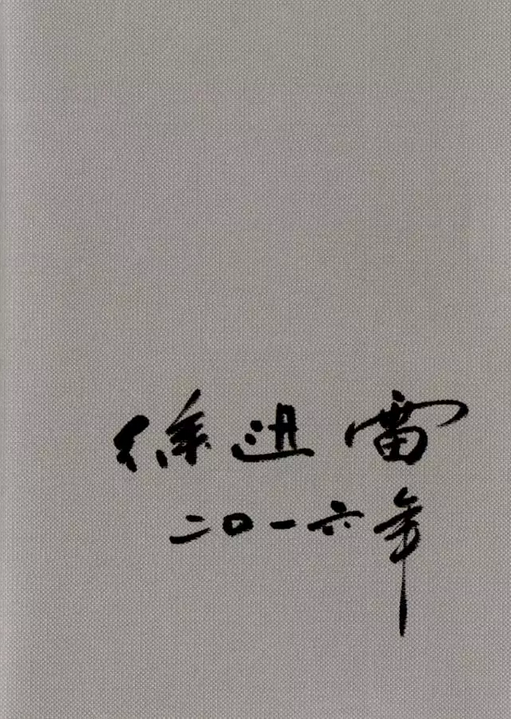 徐迅雷
二〇一六年